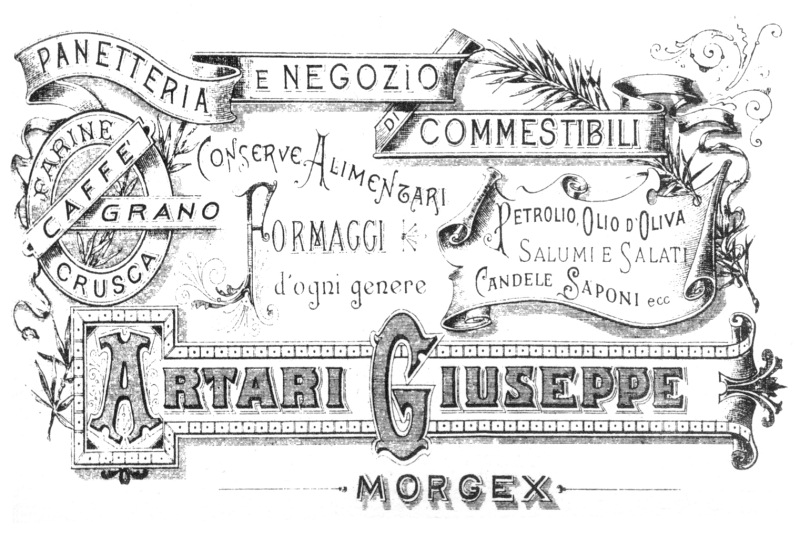 PANETTERIA E NEGOZIO
DI
COMMESTIBILI
FARINE
CAFFE'
GRANO
CRUSCA
CONSERVE ALIMENTARI
FORMAGGI
d'ogni genere
PETROLIO, OLIO D'OLIVA
SALUMI E SALATI
CANDELE SAPONI ecc
ARTARI GIUSEPPE
MORGEX